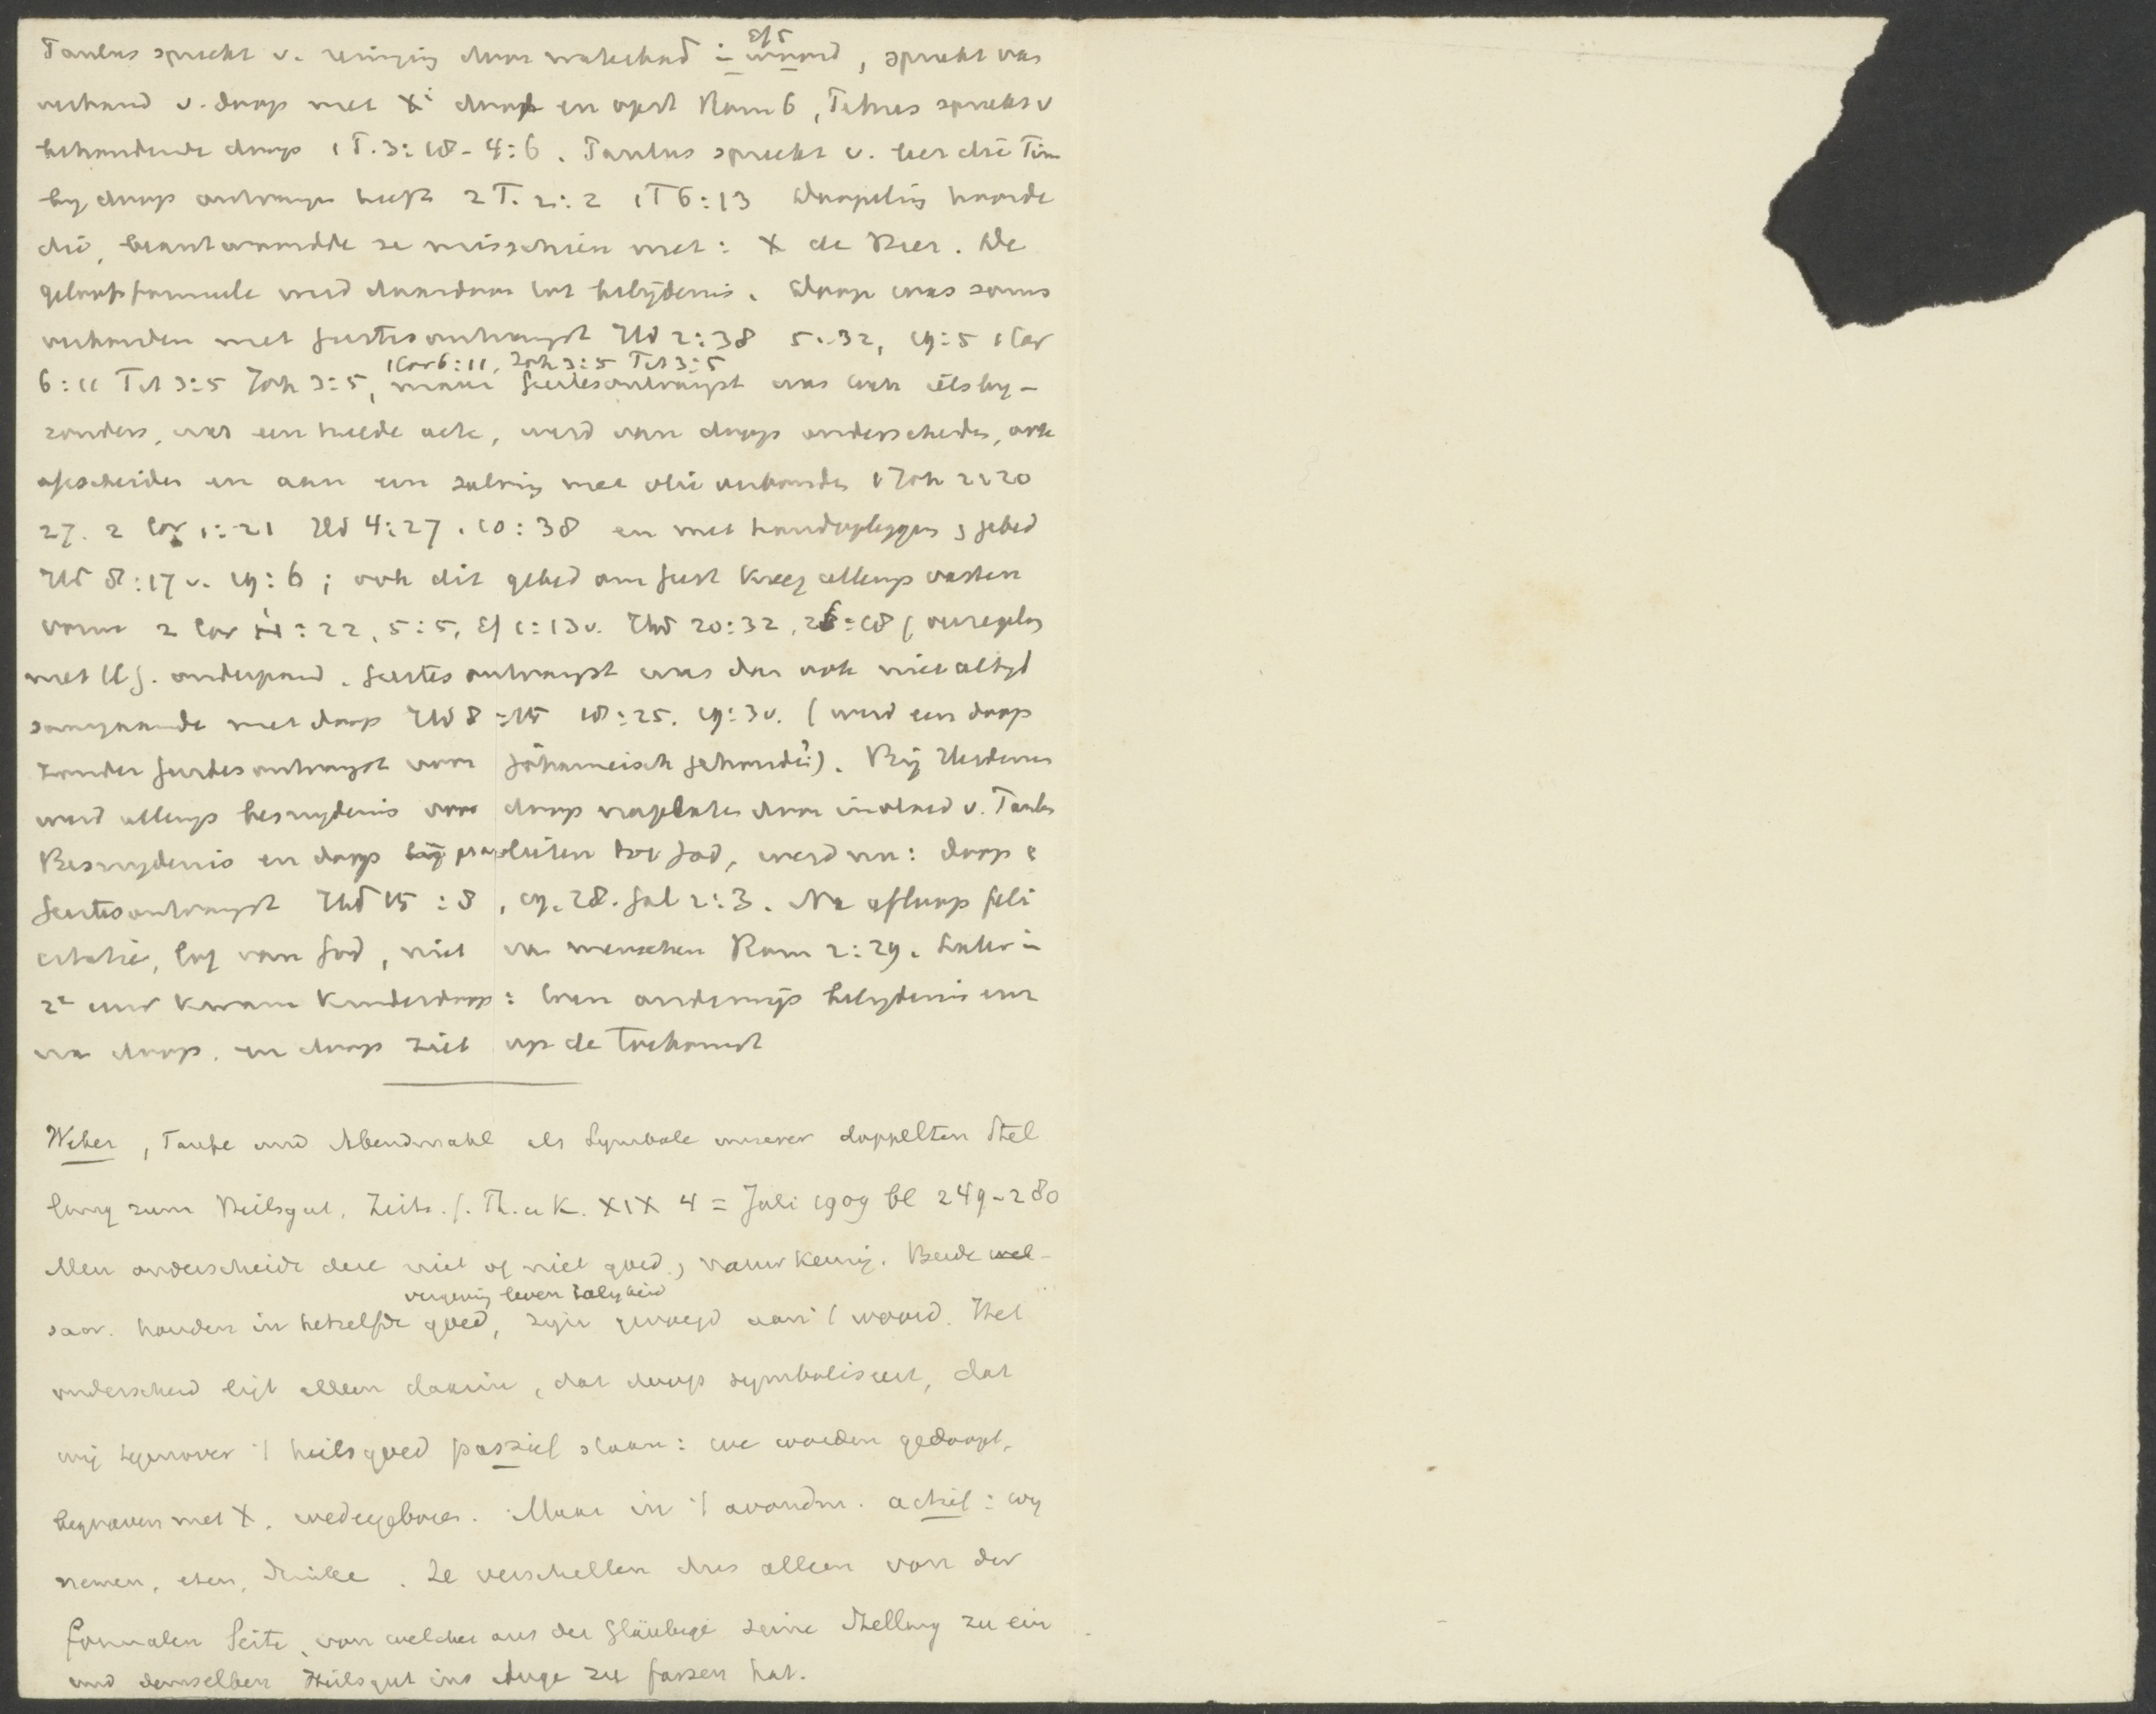 Paulus spreekt v. reiniging door waterbad in woord Ef 5, spreekt van
verband v. doop met Xi dood en opst Rom 6, Petrus spreekt v
behoudende doop 1 P. 3:18-4:6. Paulus spreekt v. leer die Tim
by doop ontvangen heeft 2 T. 2:2 1 T 6:13 Doopeling hoorde
die, beantwoordde ze misschien met: X de Heer. De
geloofsformule werd daardoor tot belijdenis. Doop was soms
verbonden met Geestesontvangst Hd 2:38 5:32, 19:5 1 Cor
6:11 Tit 3:5 Joh 3:5, 1 Cor 6:11, Joh 3:5 Tit 3:5 maar Geestesontvangst was toch iets by-
zonders, was een tweede acte, werd van doop onderscheiden, ook
gescheiden en aan een zalving met olie verbonden 1 Joh 2:20
27. 2 Cor 1:21 Hd 4:27. 10:38 en met handoplegging & gebed
Hd 8:17 v. 19:6; ook dit gebed om Geest kreeg allengs vasten
vorm 2 Cor 1:22, 5:5, Ef 1:13 v. Hd 20:32, 26:18 (verzegeling
met H G. onderpand. Geestesontvangst was dan ook niet altyd
samengaande met doop Hd 8:15 18:25. 19:3 v. (werd een doop
zonder Geestesontvangst voor Johanneisch gehouden?). Bij Heidenen
werd allengs besnydenis voor doop nagelaten door invloed v. Paulus
Besnydenis en doop bij proselieten tot God, werd nu: doop &
Geestesontvangst Hd 15:8, 19. 28. Gal 2:3. Na afloop feli
citatie, lof van God, niet van menschen Rom 2:29. Later in
2e eeuw kwam kinderdoop: toen onderwijs belydenis enz
na doop. en doop ziet op de toekomst
Weber, Taufe und Abendmahl als Symbole unserer doppelten Stel
lung zum Heilsgut, Zeits. f. Th. u K. XIX 4 = Juli 1909 bl 249-280
Men onderscheidt deze niet of niet goed, nauwkeurig. Beide wel-
saor. houden in hetzelfde goed, vergeving leven zaligheid zijn gevoegd aan 't woord. Het
onderscheid ligt alleen daarin, dat doop symboliseert, dat
wij tegenover 't heilsgoed passief staan: we worden gedoopt,
begraven met X. wedergeboren. Maar in 't avondm. actief: wy
nemen, eten, drinken. Ze verschillen dus alleen von der
formalen Seite, von welcher aus der Gläubige seine Stellung zu ein
und demselben Heilsgut ins Auge zu fassen hat.